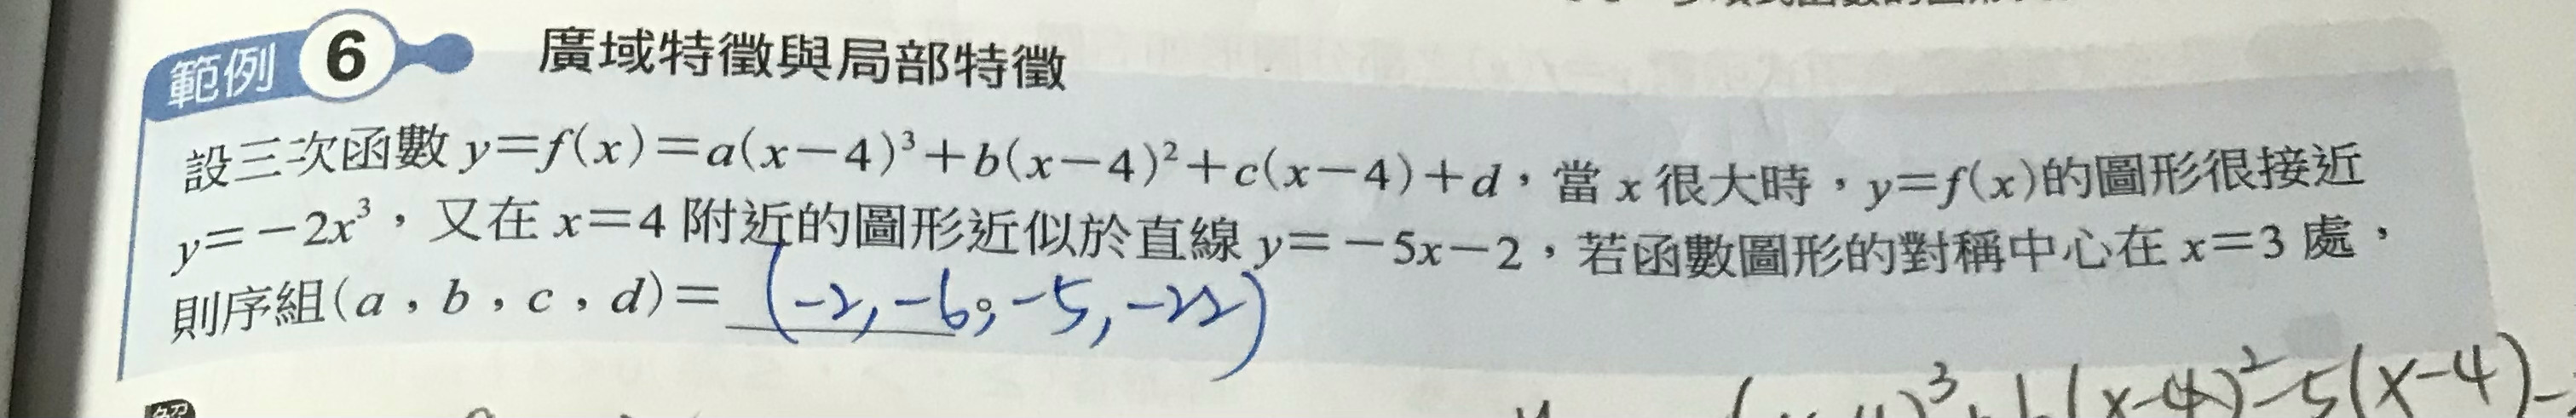 範例 6 廣域特徵與局部特徵
設三次函數 y=f(x)=a(x-4)³+b(x-4)²+c(x-4)+d,當 x 很大時,y=f(x)的圖形很接近
y=-2x³,又在 x=4 附近的圖形近似於直線 y=-5x-2,若函數圖形的對稱中心在 x=3 處,
則序組(a,b,c,d)= (-2,-6,-5,-22)。
解
(x-4)²-5(x-4)-